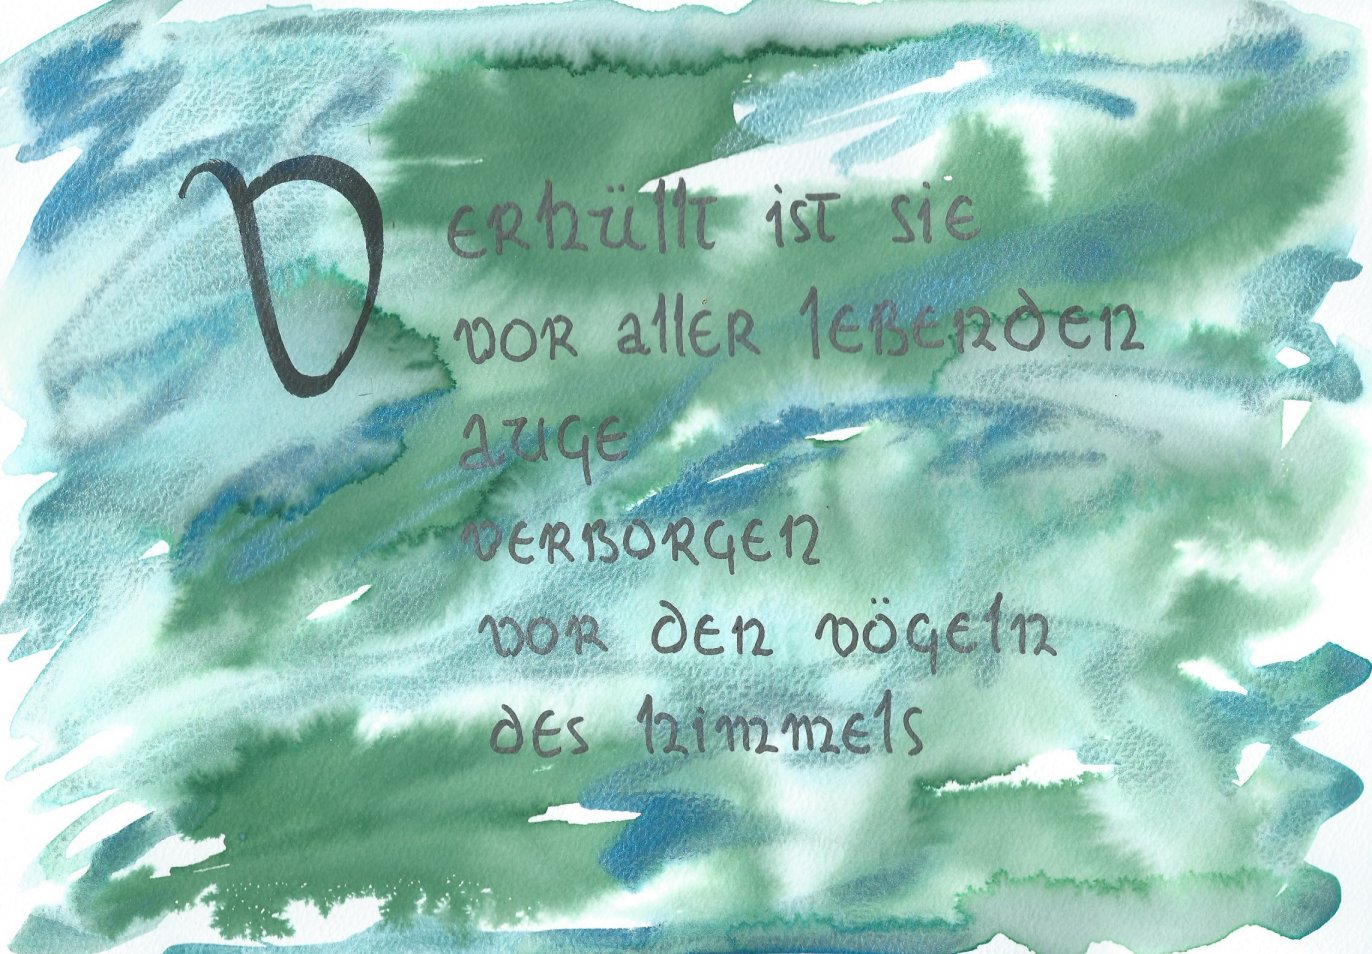 Verhüllt ist sie
vor aller lebenden
auge
verborgen
vor den vögeln
des himmels